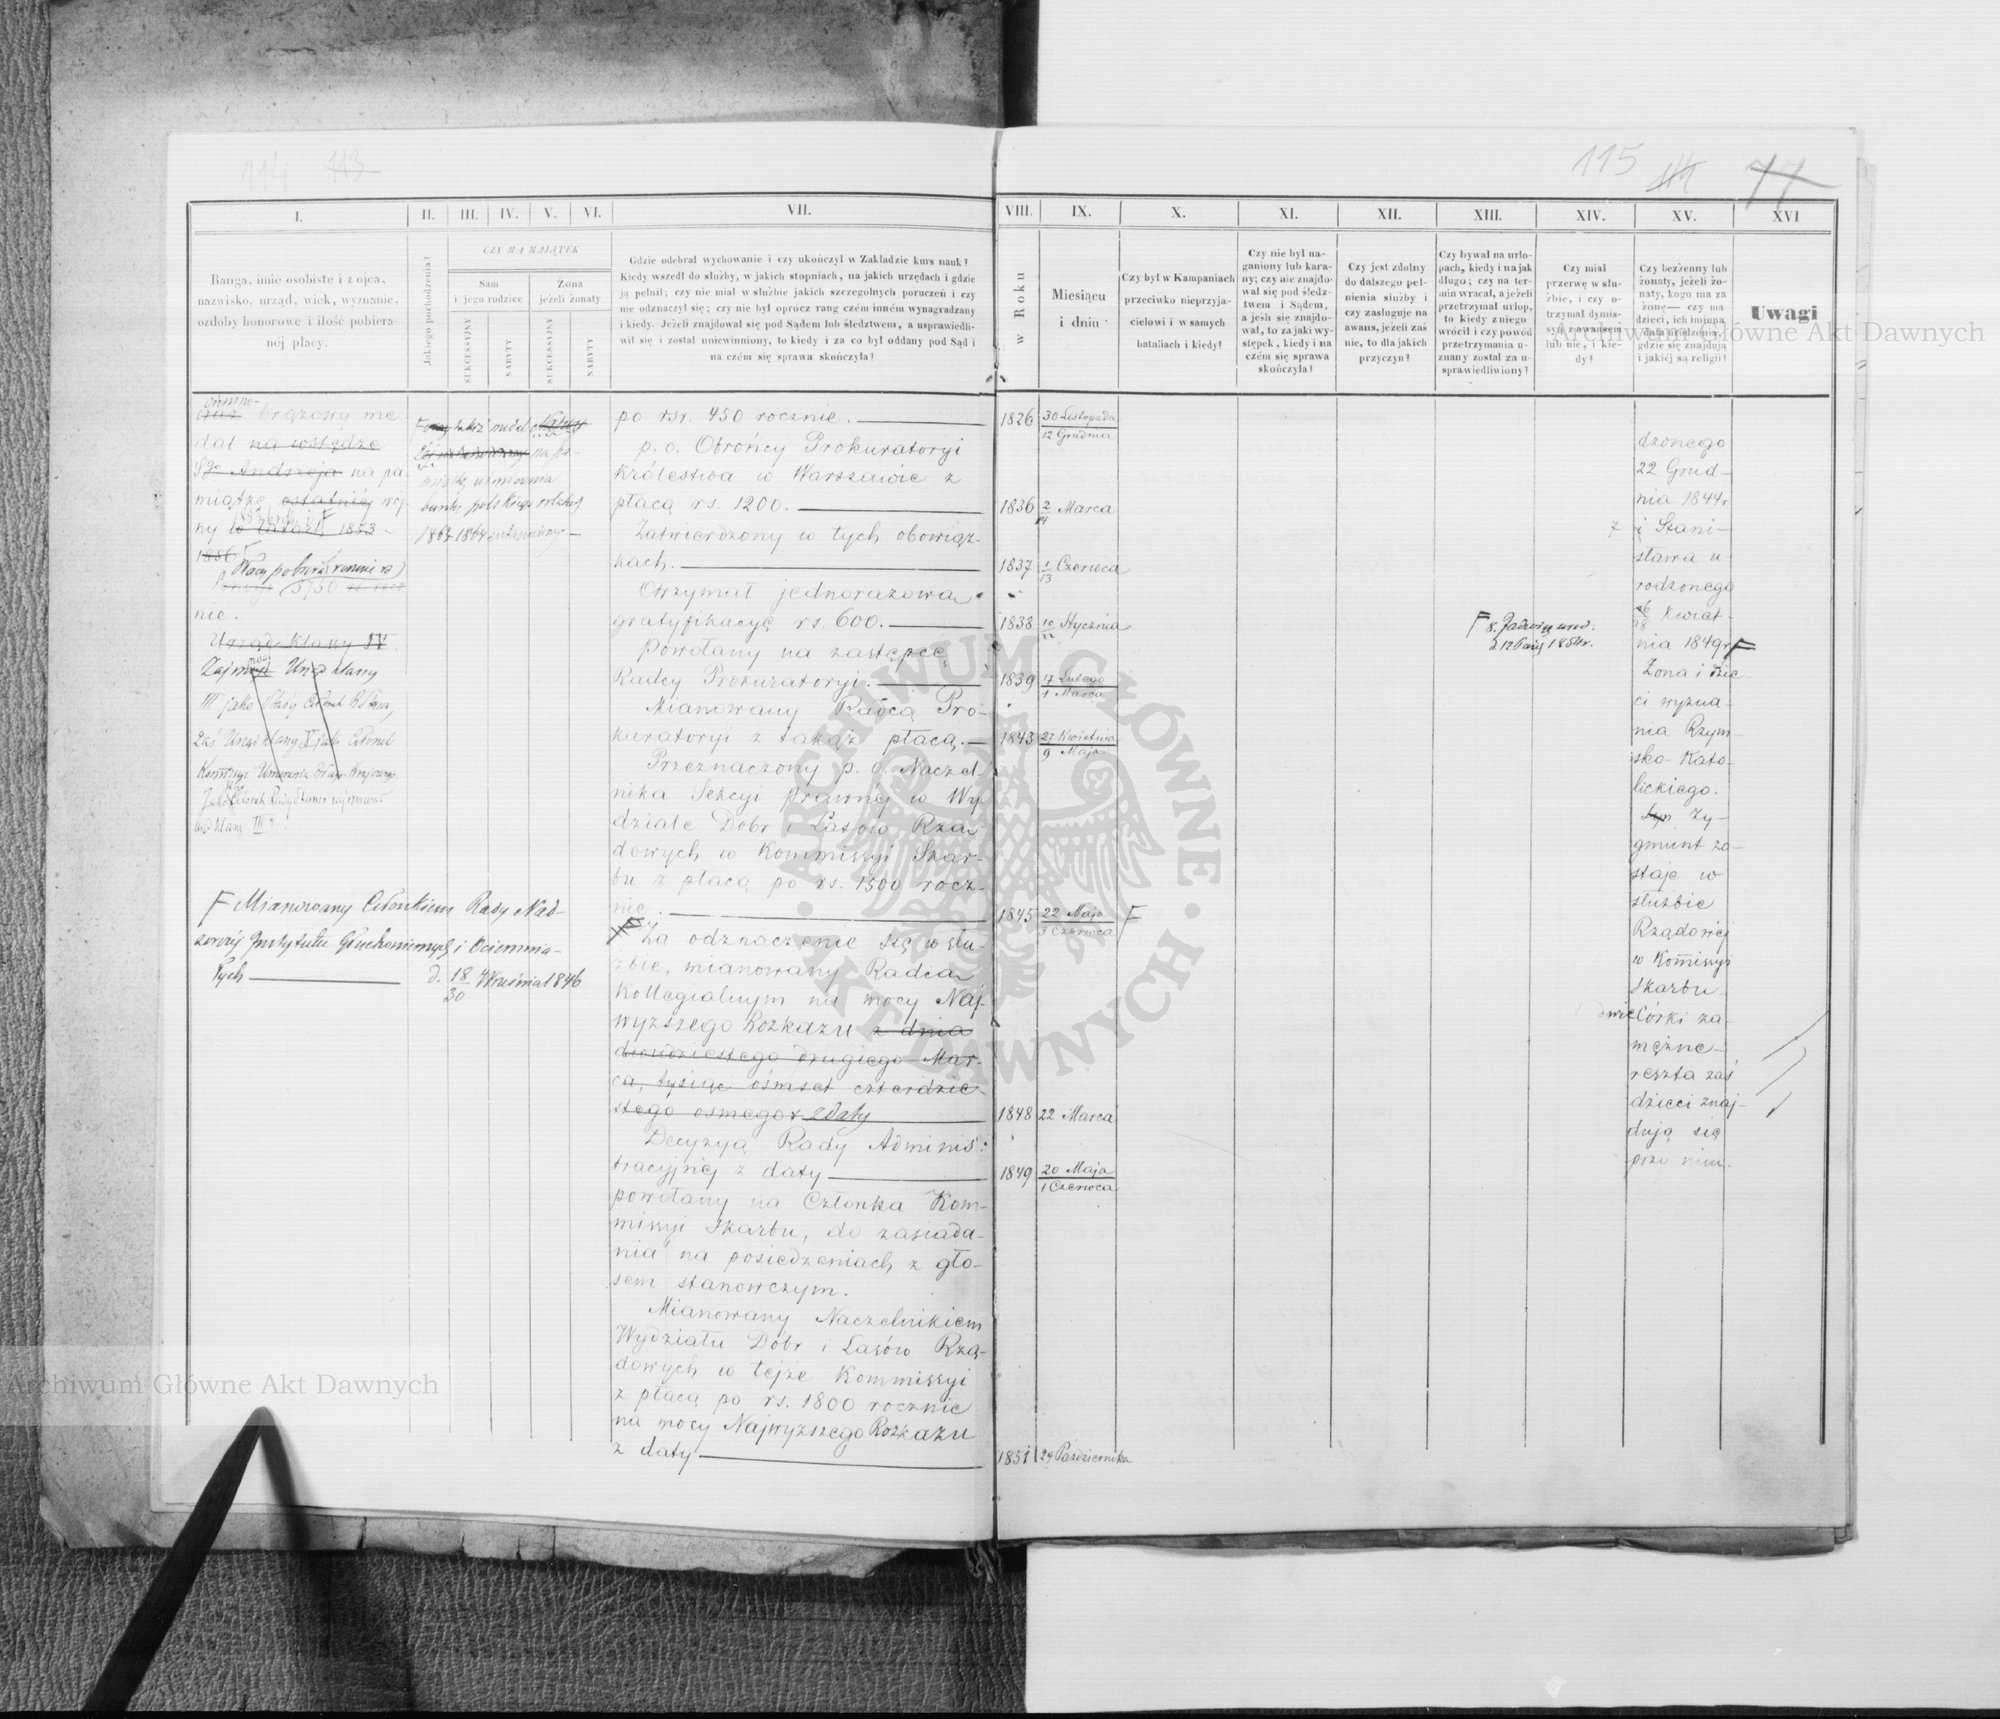 114 113
115 77
I. II. III. IV. V. VI. VII. VIII. IX. X. XI. XII. XIII. XIV. XV. XVI
Ranga, imie osobiste i z ojca,
nazwisko, urząd, wiek, wyznanie,
ozdoby honorowe i ilość pobiera-
nej płacy.
Jakiego pochodzenia?
CZY MA MAJĄTEK
Sam
i jego rodzice
Żona
jeżeli żonaty
SUKCESSYJNY
NABYTY
SUKCESSYJNY
NABYTY
Gdzie odebrał wychowanie i czy ukończył w Zakładzie kurs nauk?
Kiedy wszedł do służby, w jakich stopniach, na jakich urzędach i gdzie
ją pełnił; czy nie miał w służbie jakich szczególnych poruczeń i czy
nie odznaczył się; czy nie był oprócz rang czém inném wynagradzany
i kiedy. Jeżeli znajdował się pod Sądem lub śledztwem, a usprawiedli-
wił się i został uniewinniony, to kiedy i za co był oddany pod Sąd i
na czém się sprawa skończyła?
w Roku
Miesiącu
i dniu
Czy był w Kampaniach
przeciwko nieprzyja-
cielowi i w samych
bataliach i kiedy?
Czy nie był na-
ganiony lub kara-
ny; czy nie znajdo-
wał się pod śledz-
twem i Sądem,
a jeśli się znajdo-
wał, to za jaki wy-
stępek, kiedy i na
czém się sprawa
skończyła?
Czy jest zdolny
do dalszego peł-
nienia służby i
czy zasługuje na
awans, jeżeli zaś
nie, to dla jakich
przyczyn?
Czy bywał na urlo-
pach, kiedy i na jak
długo; czy na ter-
min wracał, a jeżeli
przetrzymał urlop,
to kiedy z niego
wrócił i czy powód
przetrzymania u-
znany został za u-
sprawiedliwiony?
Czy miał
przerwę w słu-
żbie, i czy o-
trzymał dymis-
syą z awansem
lub nie, i kie-
dy?
Czy bezżenny lub
żonaty, jeżeli żo-
naty, kogo ma za
żonę— czy ma
dzieci, ich imiona
i data urodzenia,
gdzie się znajdują
i jakiéj są religii?
Uwagi
brązowy me-
dal na wstędze
Sgo Andrzeja na pa-
miątkę ostatniéj woj-
ny w latach 1853-
1856
Płacy pobiera
5750
nie.
Urząd klassy IV
Zajmuje Urząd klassy
III jako
na pa-
buntu polskiego w latach
1863-1864
F Mianowany Członkiem Rady Nad-
zorczéj Instytutu Głuchoniemych i Ociemnia-
łych d. 18/30 Września 1846
po rsr. 450 rocznie. 1826 30 Listopada/12 Grudnia
p. o. Obrońcy Prokuratoryi
Królestwa w Warszawie z
płacą rs. 1200. 1836 2/14 Marca
Zatwierdzony w tych obowiąz-
kach. 1837 1/13 Czerwca
Otrzymał jednorazową
gratyfikacyę rs. 600. 1838 10/22 Stycznia
Powołany na zastępcę
Radcy Prokuratoryi. 1839 17 Lutego/1 Marca
Mianowany Radcą Pro-
kuratoryi z takąż płacą. 1843 27 Kwietnia/9 Maja
Przeznaczony p. o. Naczel-
nika Sekcyi Prawnéj w Wy-
dziale Dobr i Lasów Rzą-
dowych w Kommissyi Skar-
bu z płacą po rs. 1500 rocz-
nie. 1845 22 Maja/3 Czerwca F
F Za odznaczenie się w słu-
żbie, mianowany Radcą
Kollegialnym na mocy Naj-
wyższego Rozkazu z dnia
dwudziestego drugiego Mar-
ca, tysiąc ośmset czterdzie-
stego osmego z daty 1848 22 Marca
Decyzyą Rady Adminis-
tracyjnéj z daty 1849 20 Maja/1 Czerwca
powołany na Członka Kom-
missyi Skarbu, do zasiada-
nia na posiedzeniach z gło-
sem stanowczym.
Mianowany Naczelnikiem
Wydziału Dóbr i Lasów Rzą-
dowych w tejże Kommissyi
z płacą po rs. 1800 rocznie
na mocy Najwyższego Rozkazu
z daty 1851 24 Października
dzonego
22 Grud-
nia 1844r
7 i Stani-
sława u-
rodzonego
26/18 Kwiet-
nia 1849r F
F 8. Jadwigę urod.
1854r.
Żona i dzie-
ci wyzna-
nia Rzym-
sko-Kato-
lickiego.
Syn Zy-
gmunt zo-
staje w
służbie
Rządowéj
w Komissyi
Skarbu
dwie Córki za-
mężne
reszta zaś
dzieci znaj-
dują się
przy nim.
ARCHIWUM GŁÓWNE AKT DAWNYCH
Archiwum Główne Akt Dawnych
Archiwum Główne Akt Dawnych